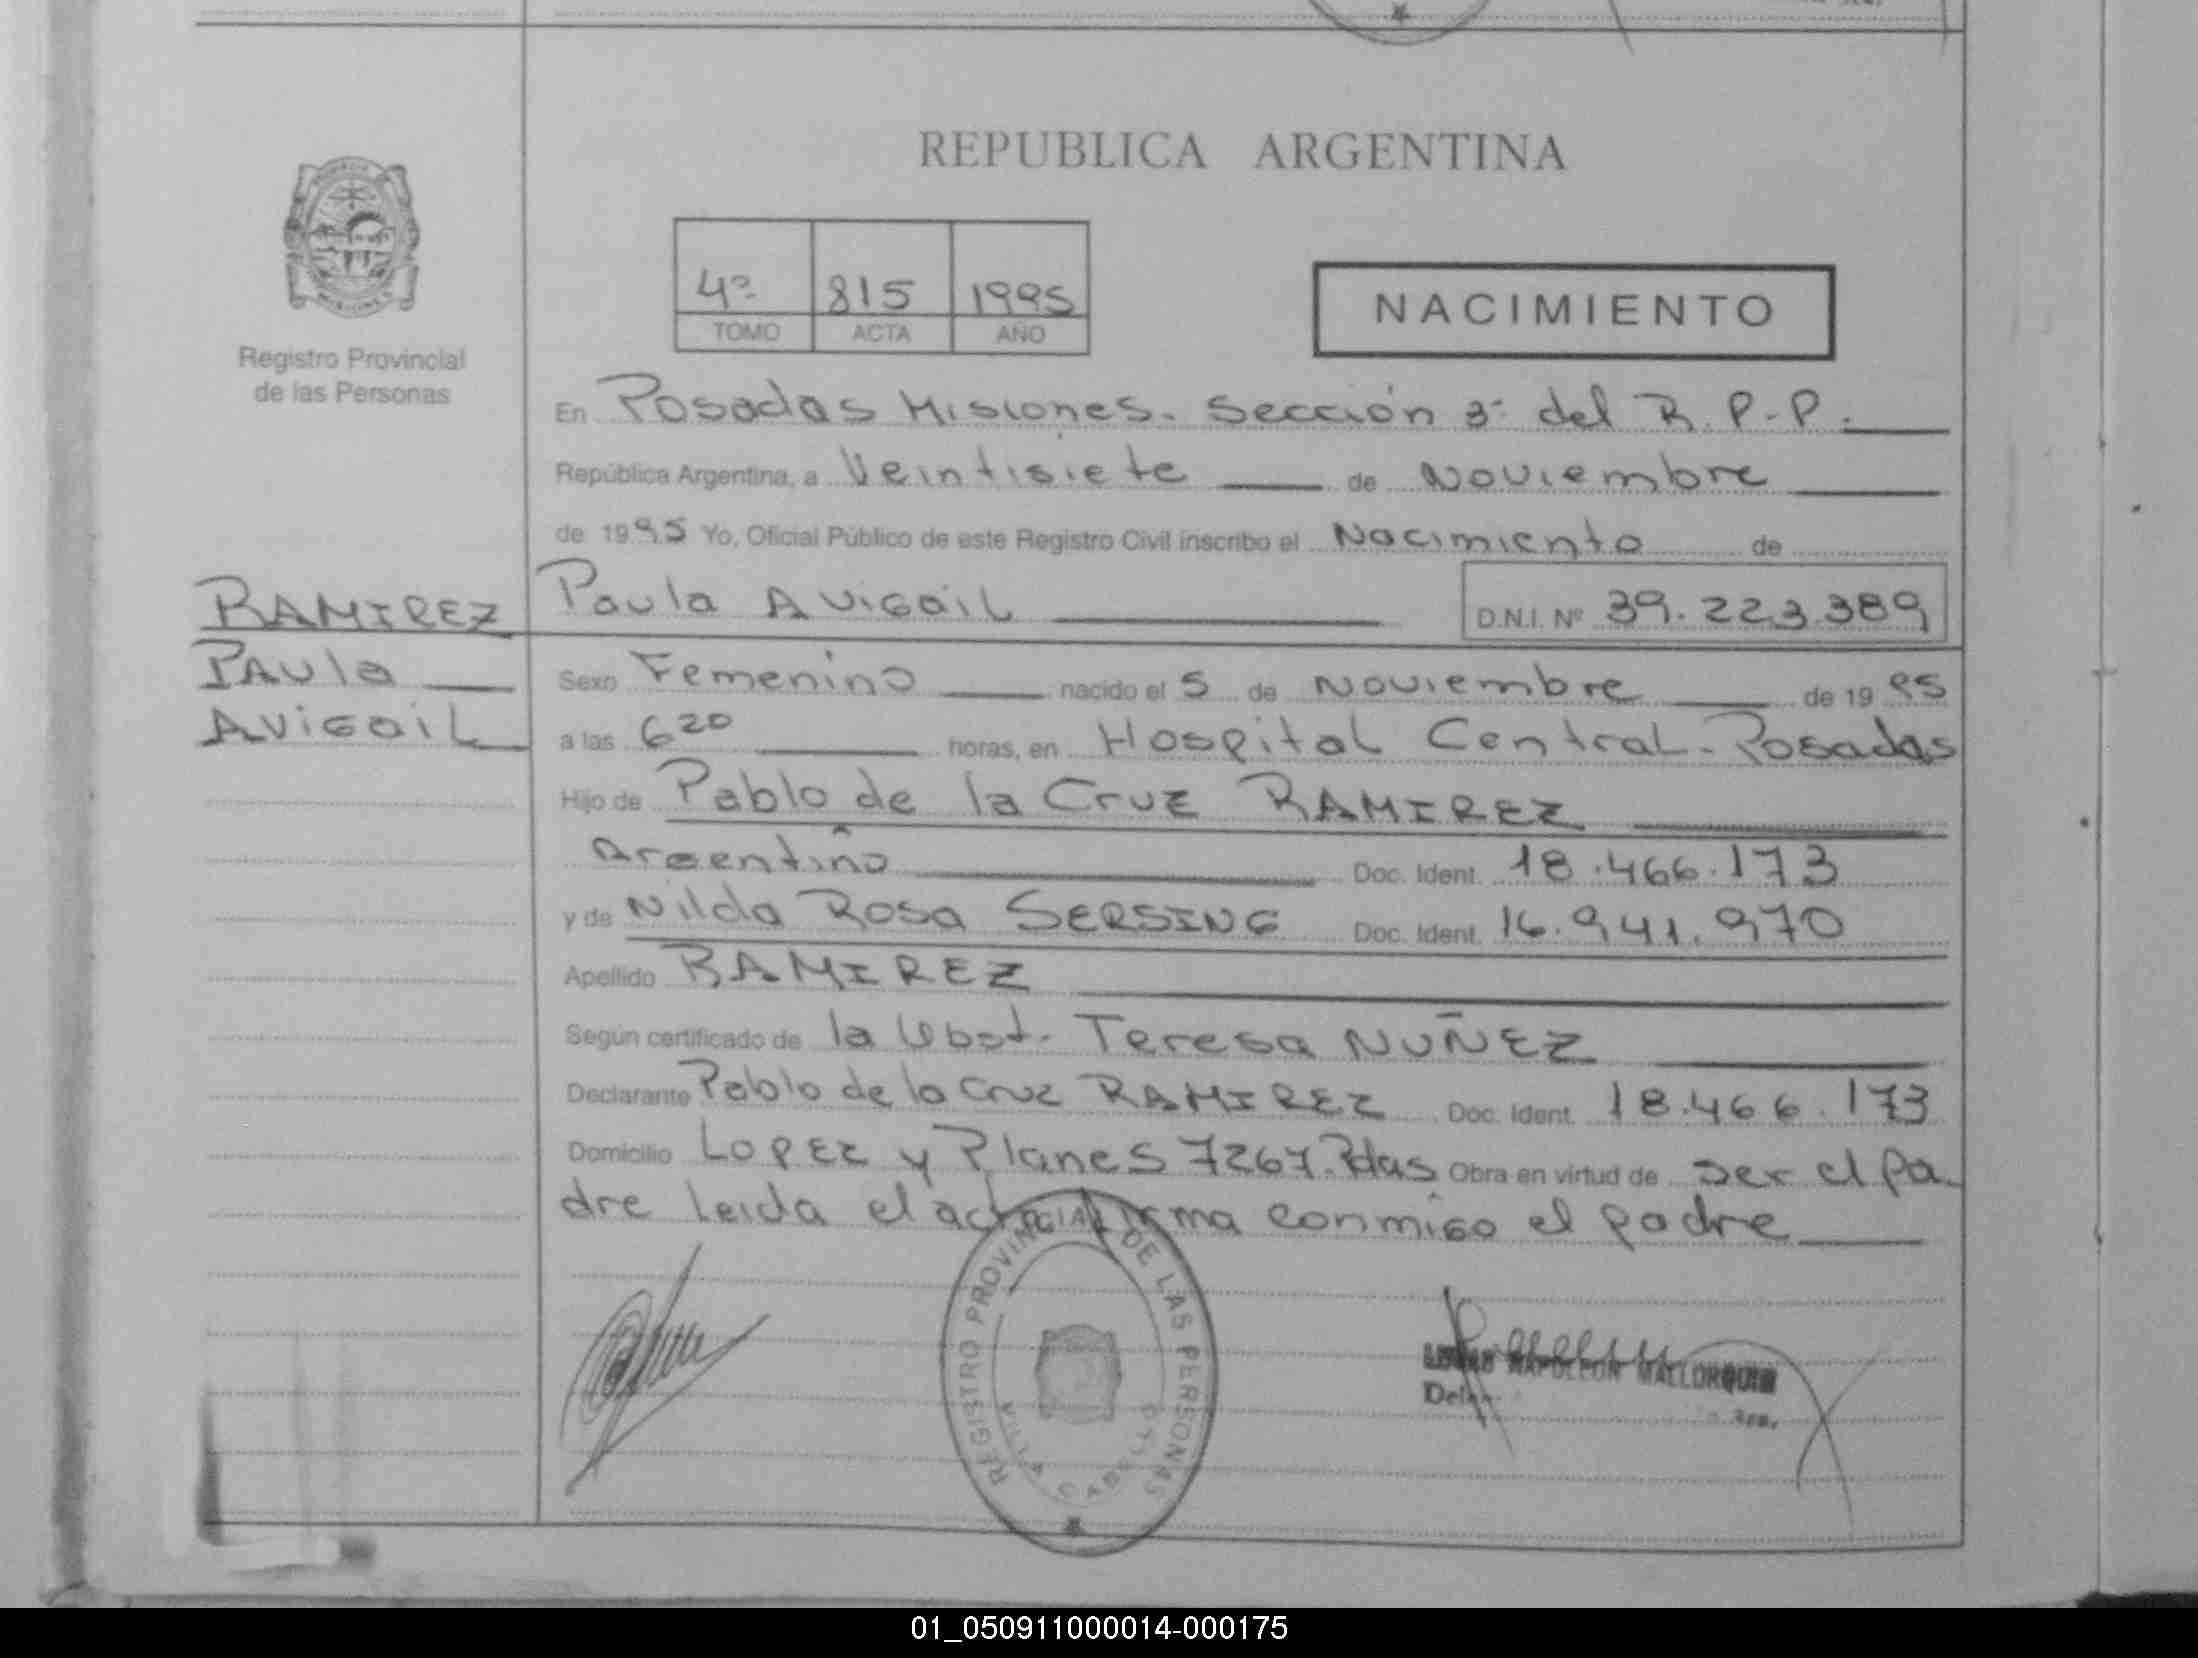 REPUBLICA ARGENTINA
4º 815 1995
TOMO ACTA AÑO
NACIMIENTO
Registro Provincial
de las Personas
En Posadas Misiones. Sección 3ª del R.P.P.
República Argentina, a Veintisiete de Noviembre
de 1995 Yo, Oficial Público de este Registro Civil inscribo el Nacimiento de
RAMIREZ
Paula
AVIGAIL
Paula AVIGAIL D.N.I. Nº 39.223.389
Sexo Femenino nacido el 5 de Noviembre de 1995
a las 6 20 horas, en Hospital Central-Posadas
Hijo de Pablo de la Cruz RAMIREZ
Argentino Doc. Ident. 18.466.173
y de Nilda Rosa SERSING Doc. Ident. 16.941.970
Apellido RAMIREZ
Según certificado de la Obst. Teresa NUÑEZ
Declarante Pablo de la Cruz RAMIREZ Doc. Ident. 18.466.173
Domicilio Lopez y Planes 7267.Pdas Obra en virtud de ser el pa-
dre Leida el acta firma conmigo el padre
REGISTRO PROVINCIAL DE LAS PERSONAS
VILLA CABELLO
NAPOLEON MALLORQUIN
01_050911000014-000175